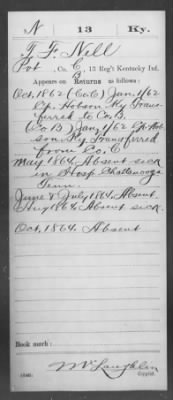 N 13 Ky.
T. F. Nell
Pvt, Co. C, 13 Reg't Kentucky Inf.
B
Appears on Returns as follows:
Oct. 1862 (Co C) Jan. 1/62
Cp. Hobson Ky Trans-
ferred to Co. B.
(Co B) Jan. 1/62 Cp. Hob-
son Ky Transferred
from Co. C
May 1864. Absent sick
in Hosp. Chattanooga
Tenn.
June & July 1864. Absent.
Aug 1864. Absent sick.
Oct. 1864. Absent
Book mark:
McLaughlin
Copyist.